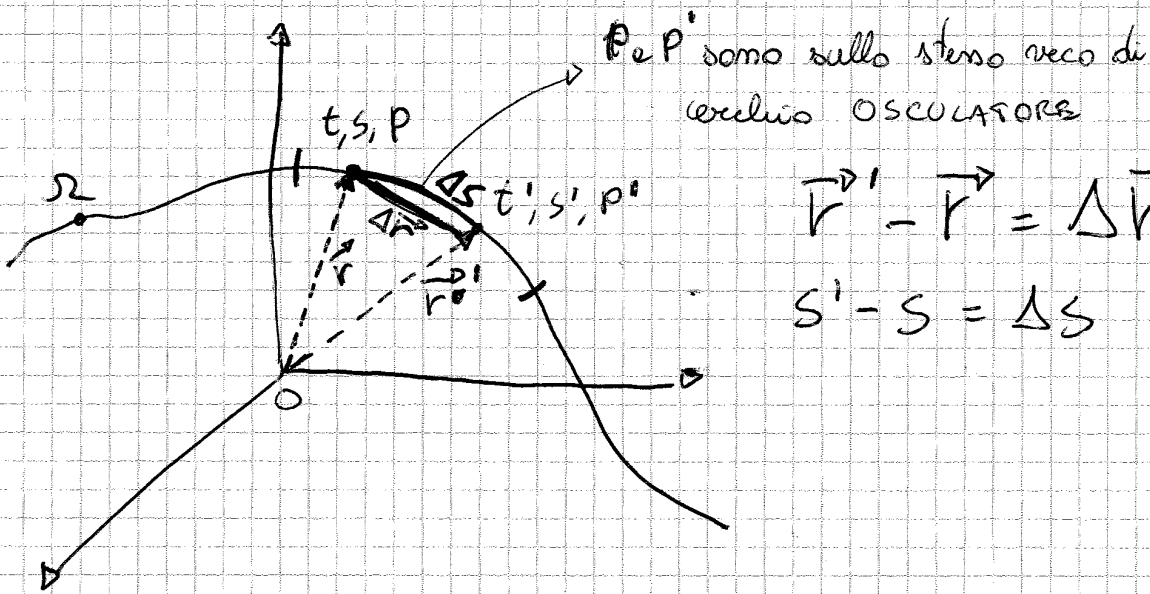 P e P' sono sullo stesso arco di
cerchio OSCULATORE
t, s, P
Ω
Δs
t', s', P'
Δr⃗
r⃗
r⃗'
r⃗' - r⃗ = Δr⃗
s' - s = Δs
O